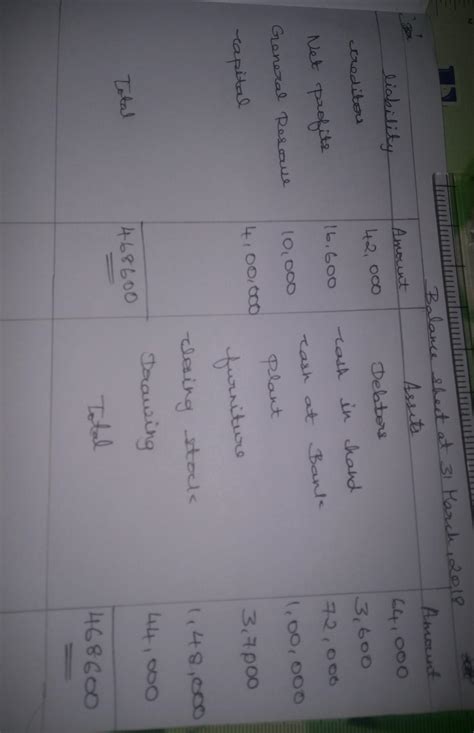 Balance sheet at 31 March, 2018
liability Amount Assets Amount
creditors 42,000 Debtors 64,000
Net profits 16,600 cash in hand 3,600
General Reserve 10,000 cash at Bank 72,000
capital 4,00,000 Plant 1,00,000
furniture 3,7,000
closing stock 1,48,000
Drawing 44,000
Total 468600 Total 468600